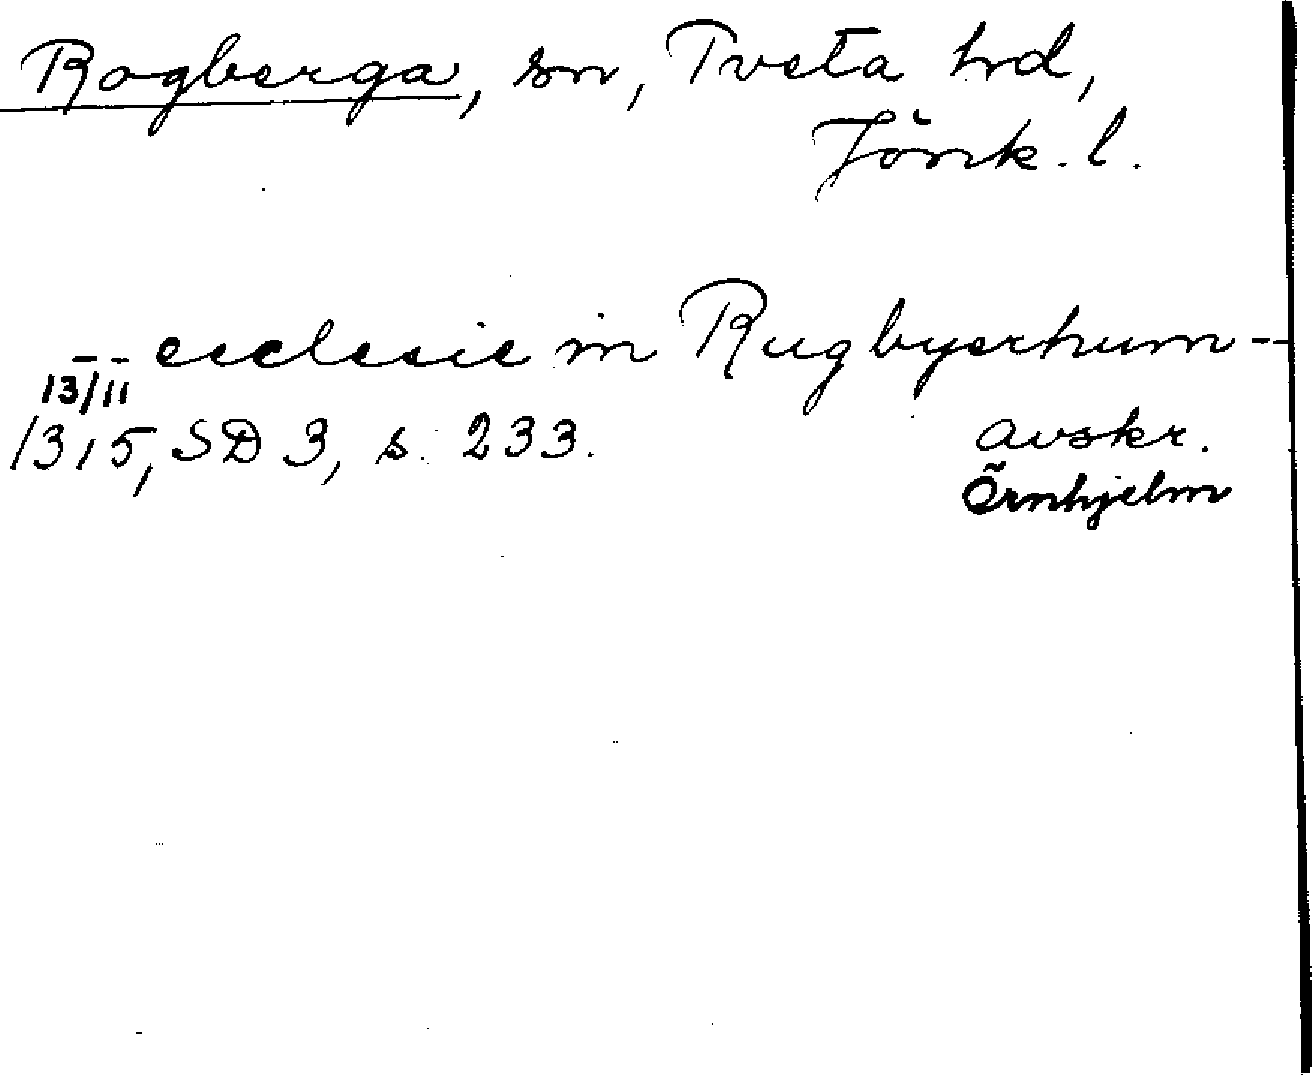 Rogberga, sn, Tveta hd,
Jönk. l.
-- ecclesie in Rugbyerhum --
13/11
1315, SD 3, s. 233. avskr.
Örnhjelm